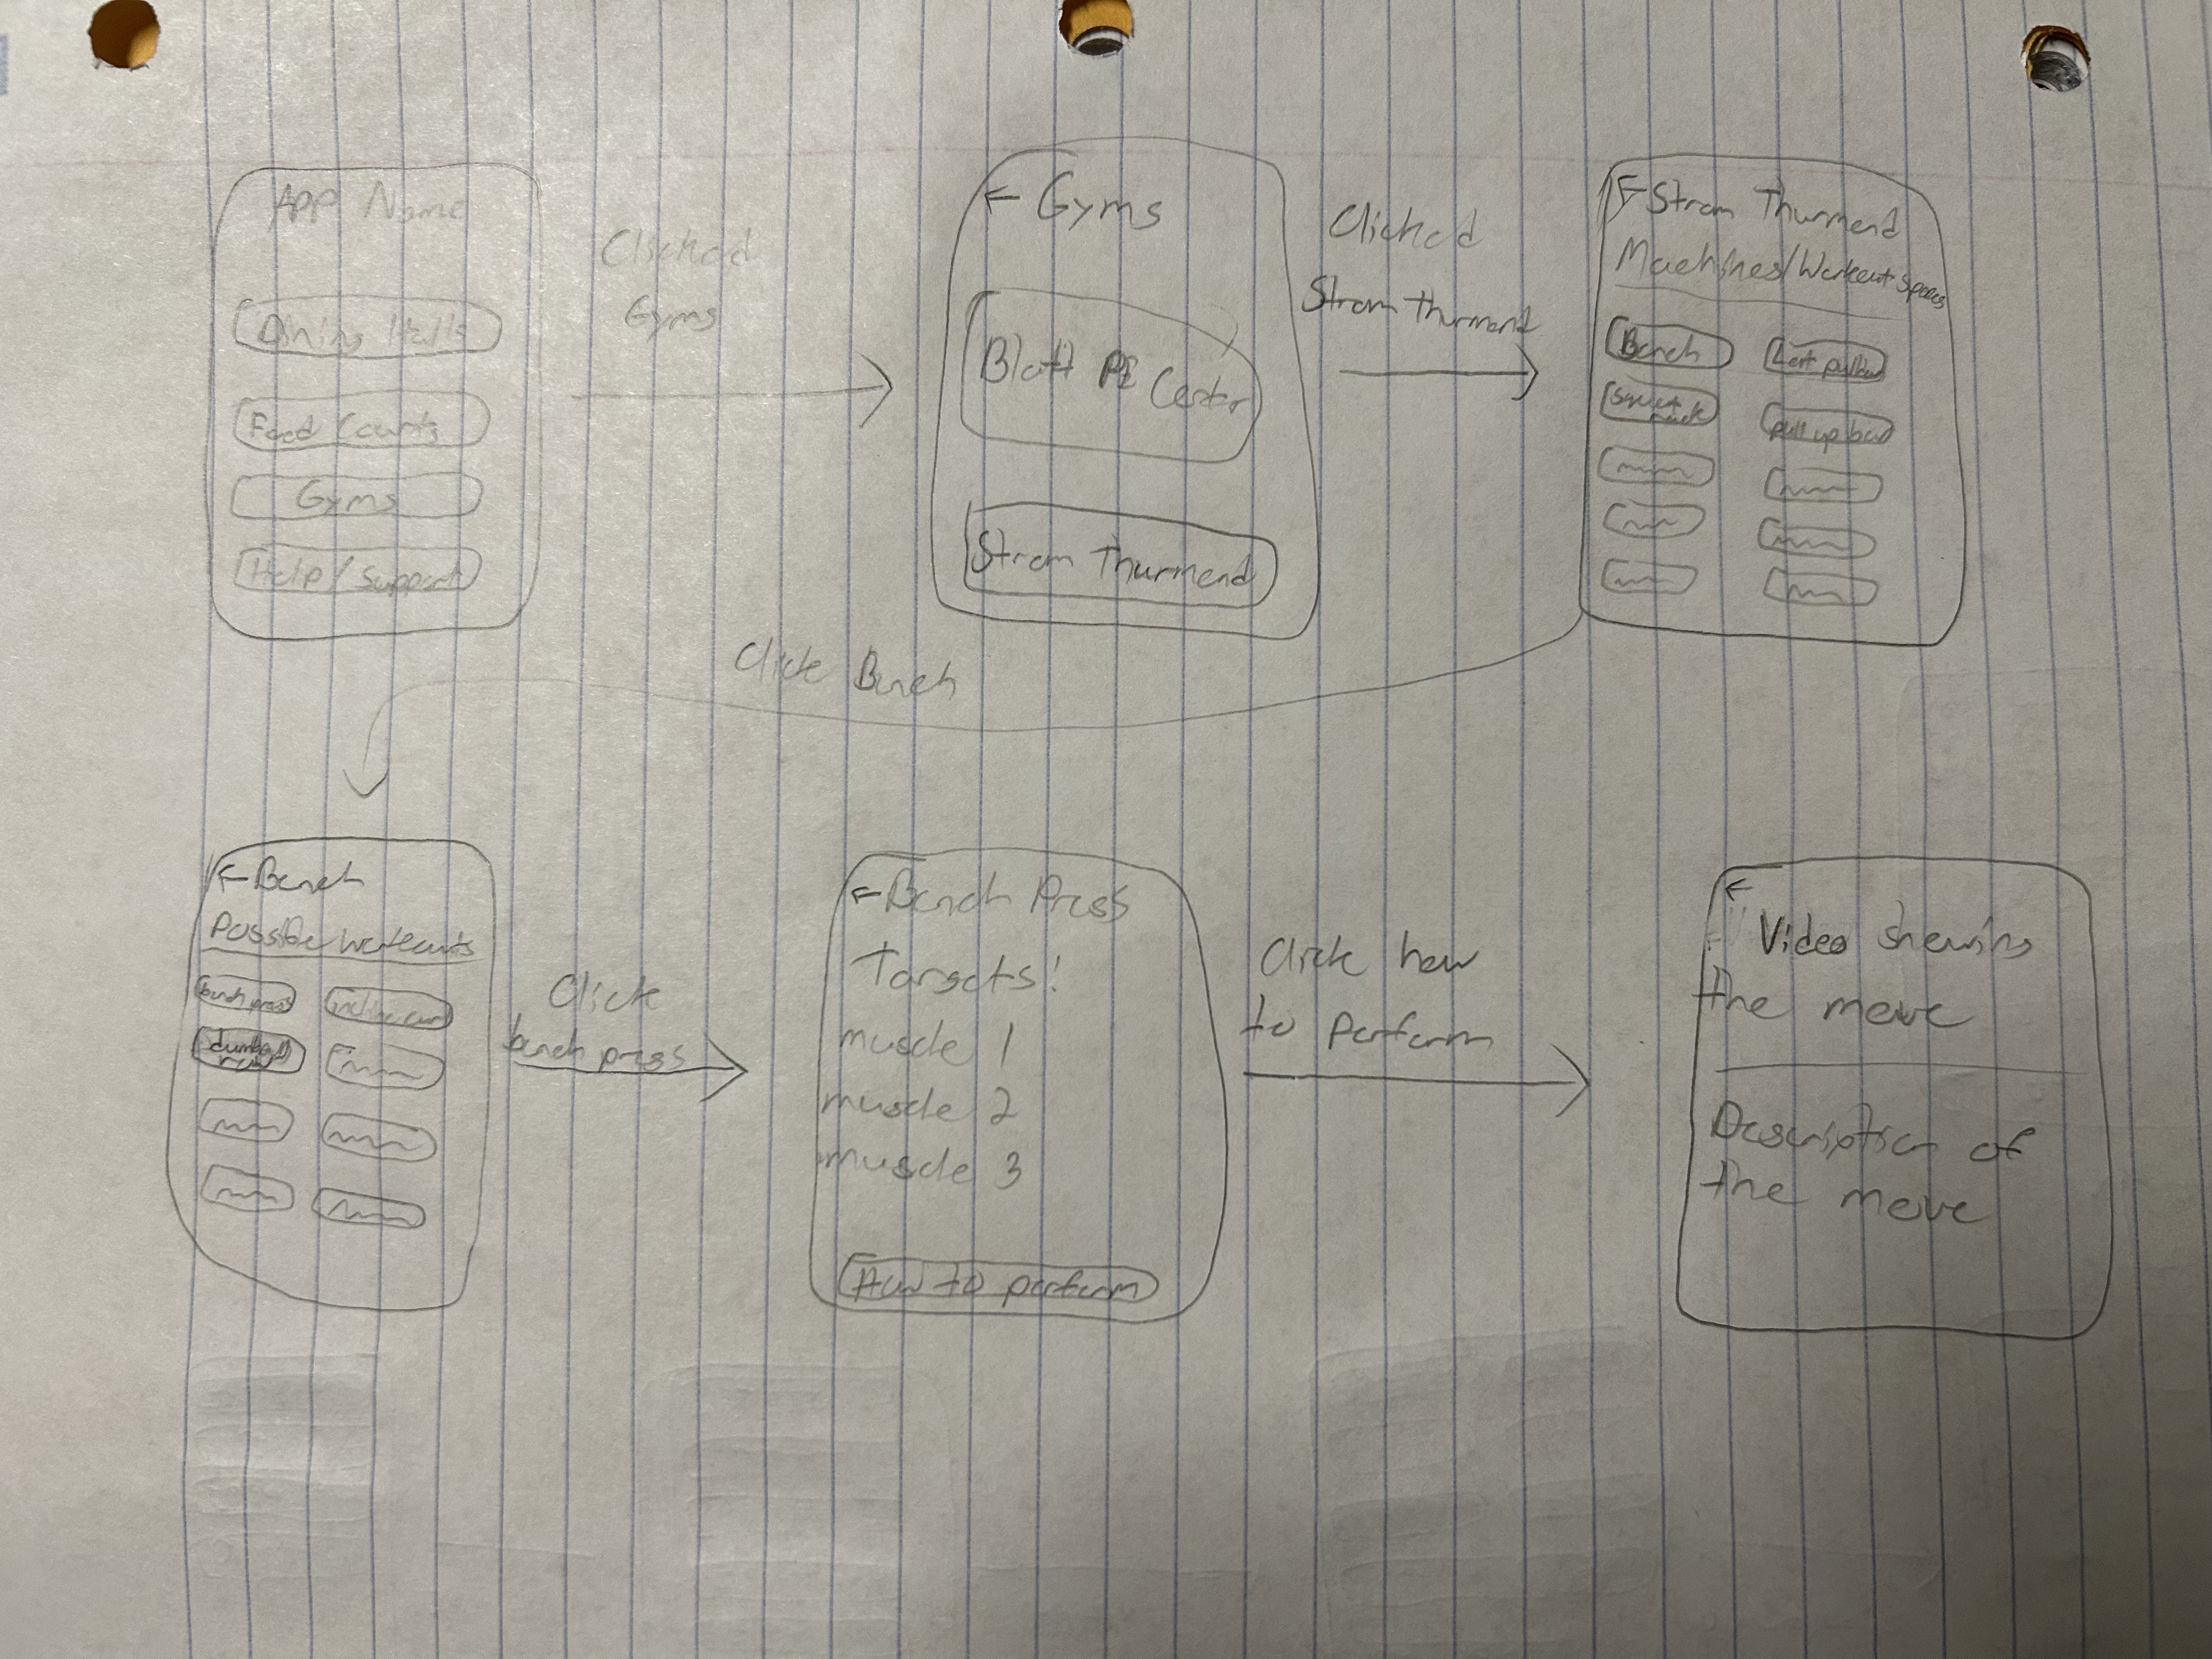 App Name
Dining Halls
Food Courts
Gyms
Help/Support
Clicked
Gyms
← Gyms
Blatt PE Center
Strom Thurmond
Clicked
Strom Thurmond
← Strom Thurmond
Machines/Workout Spaces
Bench
Lat pulldown
Squat rack
pull up bar
Click Bench
← Bench
Possible workouts
bench press
incline curl
dumbell row
Click
bench press
← Bench Press
Targets!
muscle 1
muscle 2
muscle 3
How to perform
Click how
to perform
←
Video showing
the move
Description of
the move